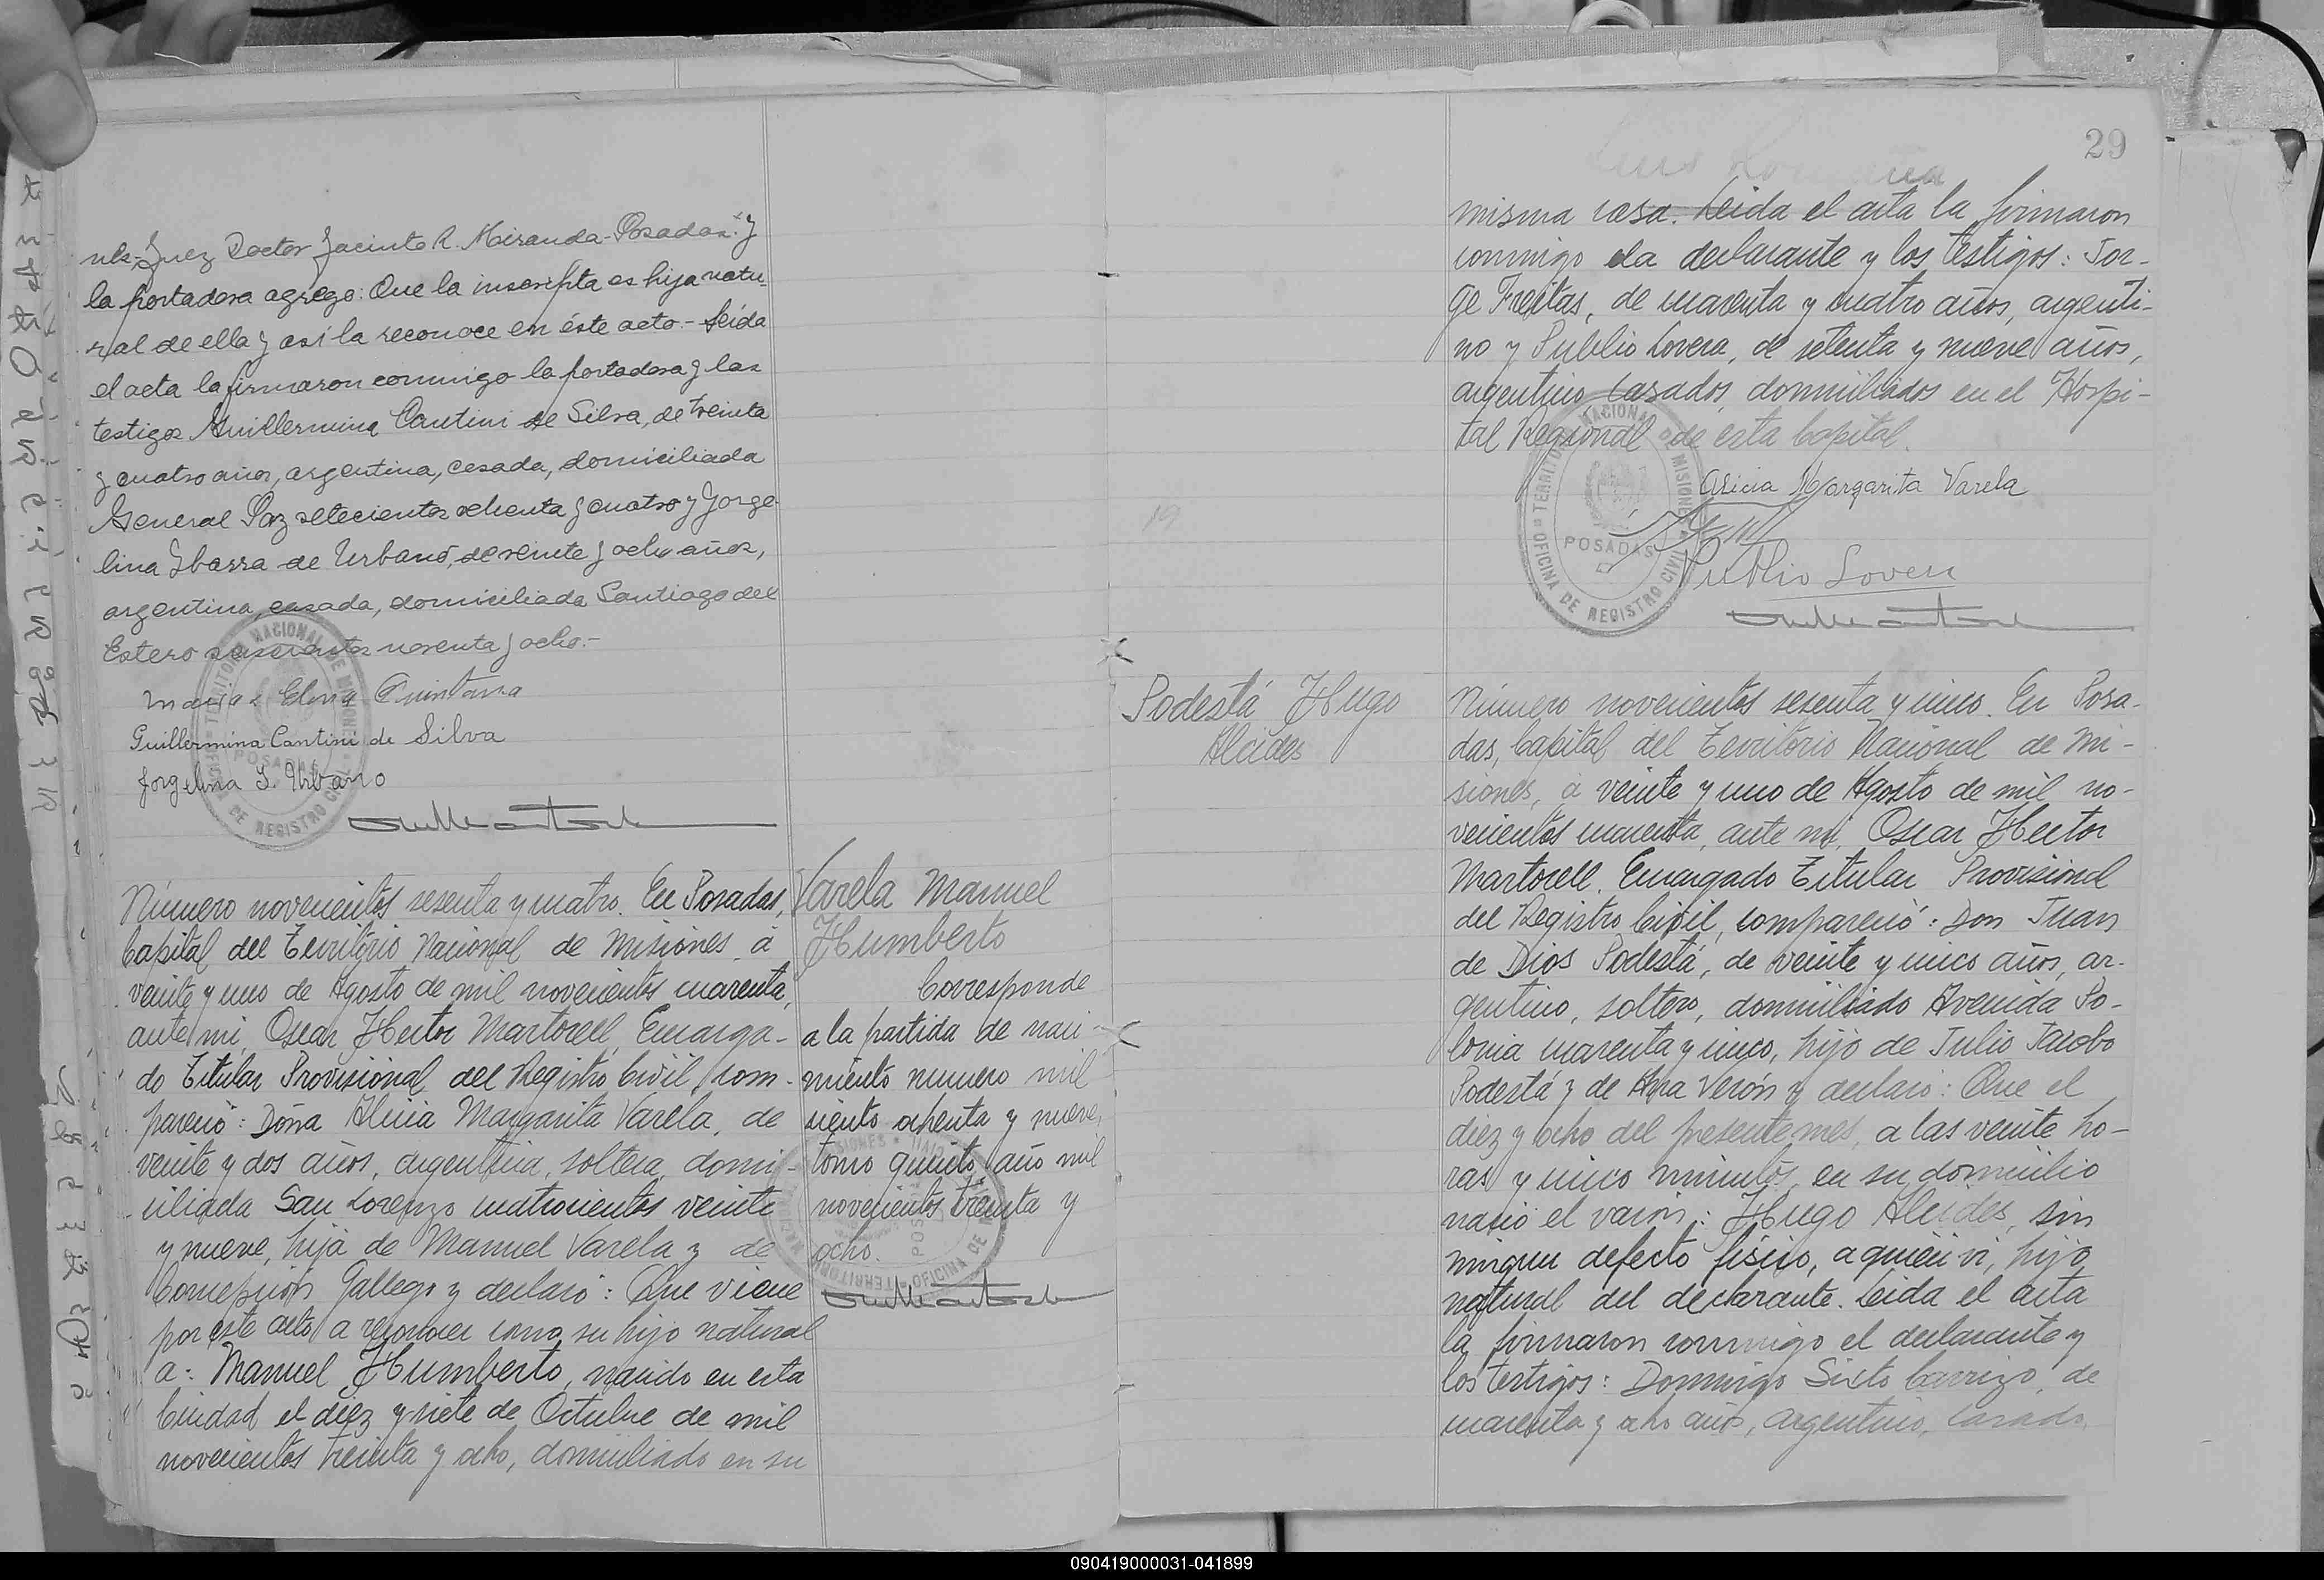 nls-Juez Doctor Jacinto R. Miranda-Posadas." y
la portadora agrega: Que la inscripta es hija natu
ral de ella y así la reconoce en éste acto.- Leida
el acta la firmaron conmigo la portadora y las
testigos Guillermina Cantini de Silva, de treinta
y cuatro años, argentina, casada, domiciliada
General Paz setecientos ochenta y cuatro y Jorge-
lina Ibarra de Urbano, de veinte y ocho años,
argentina, casada, domiciliada Santiago del
Estero seiscientos noventa y ocho.-
Maria Elena Quintana
Guillermina Cantini de Silva
Jorgelina I. Urbano
TERRITORIO NACIONAL DE MISIONES
POSADAS
OFICINA DE REGISTRO CIVIL
Número novecientos sesenta y cuatro. En Posadas,
Capital del Territorio Nacional de Misiones, á
veinte y uno de Agosto de mil novecientos cuarenta,
ante mi, Oscar Hector Martorell, Encarga-
do Titular Provisional del Registro Civil, com-
pareció: Doña Alicia Margarita Varela, de
veinte y dos años, argentina, soltera, domi-
ciliada San Lorenzo cuatrocientos veinte
y nueve, hija de Manuel Varela y de
Concepción Gallego y declaró: Que viene
por este acto a reconocer como su hijo natural
a: Manuel Humberto, nacido en esta
Ciudad el diez y siete de Octubre de mil
novecientos treinta y ocho, domiciliado en su
Varela Manuel
Humberto
Corresponde
a la partida de naci-
miento numero mil
ciento ochenta y nueve,
tomo quinto, año mil
novecientos treinta y
ocho.
29
misma casa. Leida el acta la firmaron
conmigo la declarante y los testigos: Jor-
ge Freitas, de cuarenta y cuatro años, argenti-
no y Publio Lovera, de setenta y nueve años,
argentino casados, domiciliados en el Hospi-
tal Regional de esta Capital.
Alicia Margarita Varela
TERRITORIO NACIONAL DE MISIONES
POSADAS
OFICINA DE REGISTRO CIVIL
Publio Lovera
19
Podestá Hugo
Alcides
Número novecientos sesenta y cinco. En Posa-
das, Capital del Territorio Nacional de Mi-
siones, á veinte y uno de Agosto de mil no-
vecientos cuarenta, ante mi, Oscar Hector
Martorell, Encargado Titular Provisional
del Registro Civil, compareció: Don Juan
de Dios Podestá, de veinte y cinco años, ar-
gentino, soltero, domiciliado Avenida Po-
lonia cuarenta y cinco, hijo de Julio Jacobo
Podestá y de Ana Verón y declaró: Que el
diez y ocho del presente mes, a las veinte ho-
ras y cinco minutos, en su domicilio
nació el varón: Hugo Alcides, sin
ningun defecto físico, a quien vi, hijo
natural del declarante. Leida el acta
la firmaron conmigo el declarante y
los testigos: Domingo Sixto Carrizo, de
cuarenta y ocho años, argentino, casado,
090419000031-041899